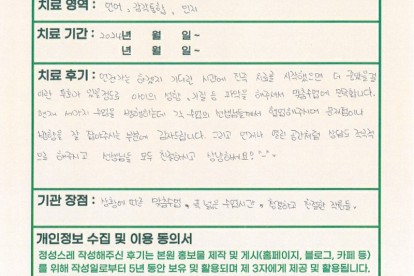 치료 영역 : 언어, 감각통합, 인지
치료 기간 : 2024년 월 일~
년 월 일~
치료 후기 : 언젠가는 하겠지 기다린 시간에 진작 치료를 시작했으면 더 좋았을걸
이란 후회가 있을정도로 아이의 성향, 기질 등 파악을 해주셔서 맞춤수업에 만족합니다.
현재 세가지 수업을 진행하는데 각 수업의 선생님들께서 협업해주시며 문제점이나
방향을 잘 잡아주시는 부분에 감사드립니다. 그리고 언제나 열린 공간처럼 상담도 적극적
으로 해주시고 선생님들 모두 친절하시고 상냥하세요! ^-^
기관 장점 : 상황에 따른 맞춤수업, 폭 넓은 수업시간, 청결하고 친절한 직원들.
개인정보 수집 및 이용 동의서
정성스레 작성해주신 후기는 본원 홍보물 제작 및 게시(홈페이지, 블로그, 카페 등)
를 위해 작성일로부터 5년 동안 보유 및 활용되며 제 3자에게 제공 및 활용됩니다.